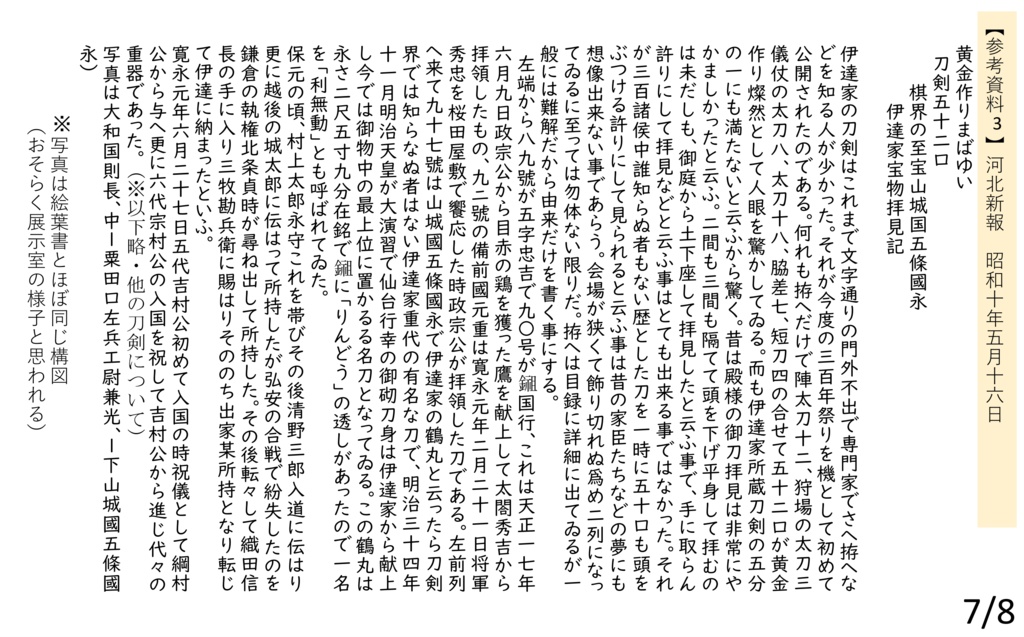 【参考資料3】 河北新報 昭和十年五月十六日
黄金作りまばゆい
刀剣五十二口
棋界の至宝山城国五條國永
伊達家宝物拝見記
伊達家の刀剣はこれまで文字通りの門外不出で専門家でさへ拵へな
どを知る人が少かった。それが今度の三百年祭りを機として初めて
公開されたのである。何れも拵へだけで陣太刀十二、狩場の太刀三
儀仗の太刀八、太刀十八、脇差七、短刀四の合せて五十二口が黄金
作り燦然として人眼を驚かしてゐる。而も伊達家所蔵刀剣の五分
の一にも満たないと云ふから驚く。昔は殿様の御刀拝見は非常にや
かましかったと云ふ。二間も三間も隔てて頭を下げ平身して拝むの
は未だしも、御庭から土下座して拝見したと云ふ事で、手に取らん
許りにして拝見などと云ふ事はとても出来る事ではなかった。それ
が三百諸侯中誰知らぬ者もない歴とした刀を一時に五十口も頭を
ぶつける許りにして見られると云ふ事は昔の家臣たちなどの夢にも
想像出来ない事であらう。会場が狭くて飾り切れぬ爲め二列になっ
てゐるに至っては勿体ない限りだ。拵へは目録に詳細に出てゐるが一
般には難解だから由来だけを書く事にする。
左端から八九號が五字忠吉で九〇号が鎺国行、これは天正一七年
六月九日政宗公から目赤の鶏を獲った鷹を献上して太閤秀吉から
拝領したもの、九二號の備前國元重は寛永元年二月二十一日将軍
秀忠を桜田屋敷で饗応した時政宗公が拝領した刀である。左前列
へ来て九十七號は山城國五條國永で伊達家の鶴丸と云ったら刀剣
界では知らなぬ者はない伊達家重代の有名な刀で、明治三十四年
十一月明治天皇が大演習で仙台行幸の御砌刀身は伊達家から献上
し今では御物中の最上位に置かるる名刀となってゐる。この鶴丸は
永さ二尺五寸九分在銘で鎺に「りんどう」の透しがあったので一名
を「利無動」とも呼ばれてゐた。
保元の頃、村上太郎永守これを帯びその後清野三郎入道に伝はり
更に越後の城太郎に伝はって所持したが弘安の合戦で紛失したのを
鎌倉の執権北条貞時が尋ね出して所持した。その後転々して織田信
長の手に入り三牧勘兵衛に賜はりそののち出家某所持となり転じ
て伊達に納まったといふ。
寛永元年六月二十七日五代吉村公初めて入国の時祝儀として綱村
公から与へ更に六代宗村公の入国を祝して吉村公から進じ代々の
重器であった。(※以下略・他の刀剣について)
写真は大和国則長、中ー粟田口左兵工尉兼光、ー下山城國五條國
永)
※写真は絵葉書とほぼ同じ構図
(おそらく展示室の様子と思われる)
7/8